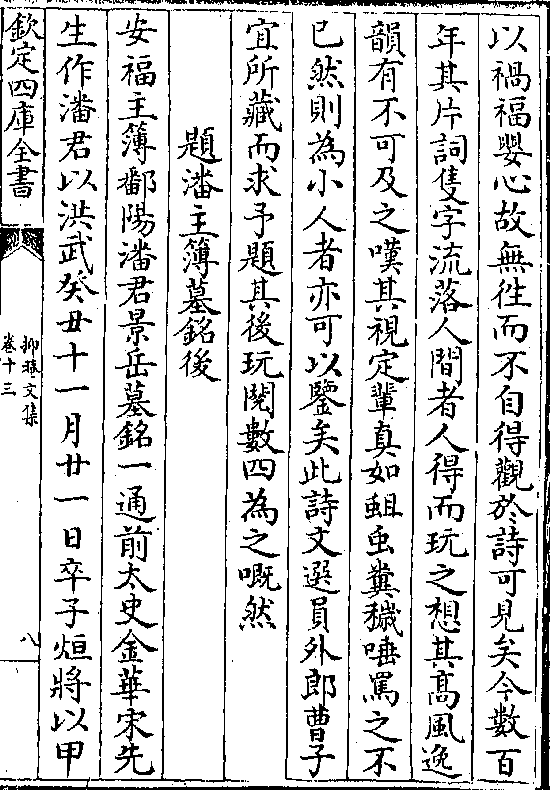 以禍福嬰心故無徃而不自得觀於詩可見矣今數百
年其片詞隻字流落人間者人得而玩之想其髙風逸
韻有不可及之嘆其視定輩真如蛆虫糞穢唾罵之不
已然則為小人者亦可以鑒矣此詩文選員外郎曹子
宜所藏而求予題其後玩閱數四為之嘅然
題潘主簿墓銘後
安福主簿鄱陽潘君景岳墓銘一通前太史金華宋先
生作潘君以洪武癸丑十一月廿一日卒子烜將以甲
欽定四庫全書
抑菴文集
卷十三
八